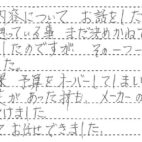 内容について お話をした
迷っている事 まだ決めかねて
したのですが、その一つ一
た。
果 予算をオーバーしてしまい
があった時も、メーカーの
けました。
てお任せできました。